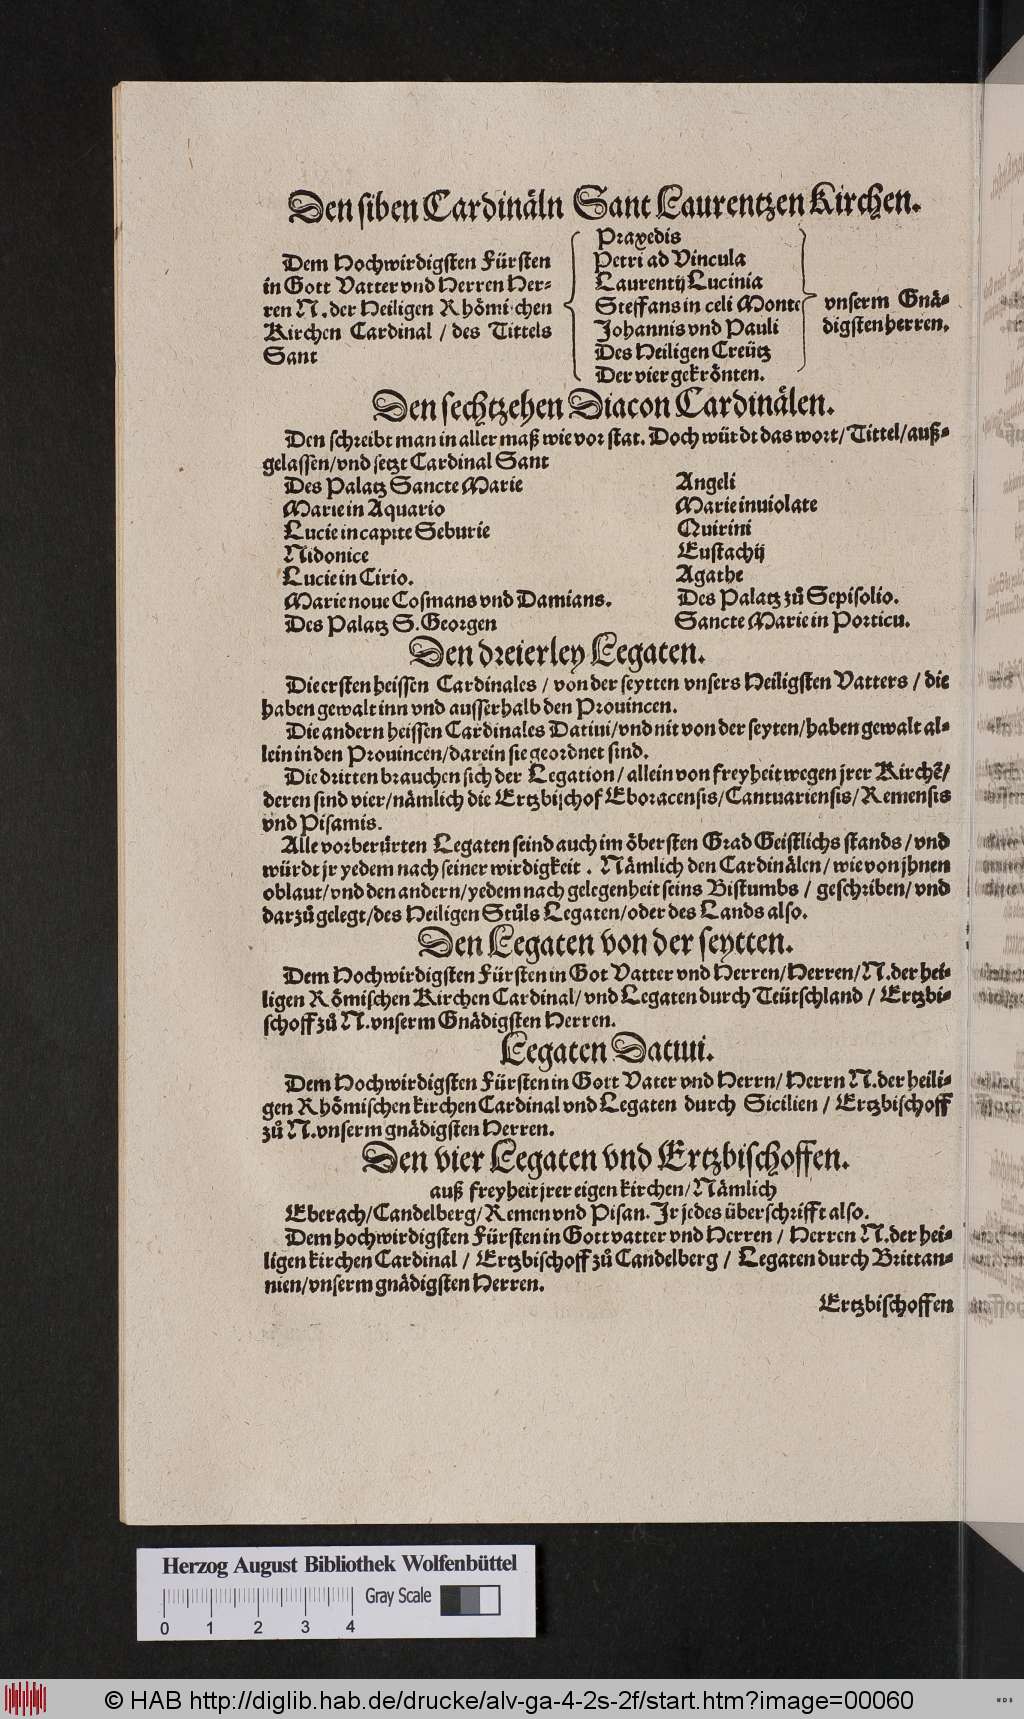 Den siben Cardinäln Sant Laurentzen Kirchen.
Dem Hochwirdigsten Fürsten
in Gott Vatter vnd Herren Her-
ren N. der Heiligen Rhömischen
Kirchen Cardinal / des Tittels
Sant
Praxedis
Petri ad Vincula
Laurentij Lucinia
Steffans in celi Monte
Johannis vnd Pauli
Des Heiligen Creütz
Der vier gekrönten.
vnserm Gnä-
digsten herren.
Den sechtzehen Diacon Cardinälen.
Den schreibt man in aller maß wie vor stat. Doch würdt das wort/ Tittel/ auß-
gelassen/ vnd setzt Cardinal Sant
Des Palatz Sancte Marie
Marie in Aquario
Lucie in capite Seburie
Nidonice
Lucie in Cirio.
Marie noue Cosmans vnd Damians.
Des Palatz S. Georgen
Angeli
Marie inuiolate
Quirini
Eustachij
Agathe
Des Palatz zů Sepisolio.
Sancte Marie in Porticu.
Den dreierley Legaten.
Die ersten heissen Cardinales / von der seytten vnsers Heiligsten Vatters / die
haben gewalt inn vnd ausserhalb den Prouincen.
Die andern heissen Cardinales Datiui/ vnd nit von der seyten/ haben gewalt al-
lein in den Prouincen/ darein sie geordnet sind.
Die dritten brauchen sich der Legation / allein von freyheit wegen jrer Kirchẽ/
deren sind vier/ nämlich die Ertzbijchof Eboracensis/ Cantuariensis/ Remensis
vnd Pisamis.
Alle vorberürten Legaten seind auch im öbersten Grad Geistlichs stands / vnd
würdt jr yedem nach seiner wirdigkeit . Nämlich den Cardinälen/ wie von jhnen
oblaut/ vnd den andern/ yedem nach gelegenheit seins Bistumbs / geschriben/ vnd
darzů gelegt/ des Heiligen Stůls Legaten/ oder des Lands also.
Den Legaten von der seytten.
Dem Hochwirdigsten Fürsten in Got Vatter vnd Herren/ Herren/ N. der hei-
ligen Römischen Kirchen Cardinal/ vnd Legaten durch Teütschland / Ertzbi-
schoff zů N. vnserm Gnädigsten Herren.
Legaten Datiui.
Dem Hochwirdigsten Fürsten in Gott Vater vnd Herrn/ Herrn N. der heili-
gen Rhömischen kirchen Cardinal vnd Legaten durch Sicilien / Ertzbischoff
zů N. vnserm gnädigsten Herren.
Den vier Legaten vnd Ertzbischoffen.
auß freyheit jrer eigen kirchen/ Nämlich
Eberach/ Candelberg/ Remen vnd Pisan. Jr jedes überschrifft also.
Dem hochwirdigsten Fürsten in Gott vatter vnd Herren / Herren N. der hei-
ligen kirchen Cardinal / Ertzbischoff zů Candelberg / Legaten durch Brittan-
nien/ vnserm gnädigsten Herren.
Ertzbischoffen
Herzog August Bibliothek Wolfenbüttel
Gray Scale
0 1 2 3 4
© HAB http://diglib.hab.de/drucke/alv-ga-4-2s-2f/start.htm?image=00060